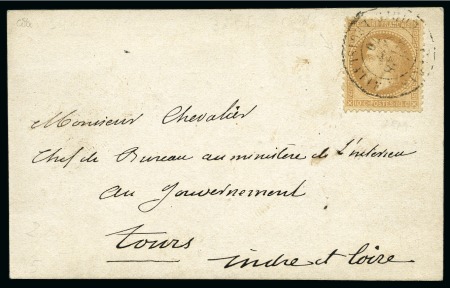 Monsieur Chevalier
Chef de Bureau au ministère de l'interieur
au Gouvernement
tours
indre et loire